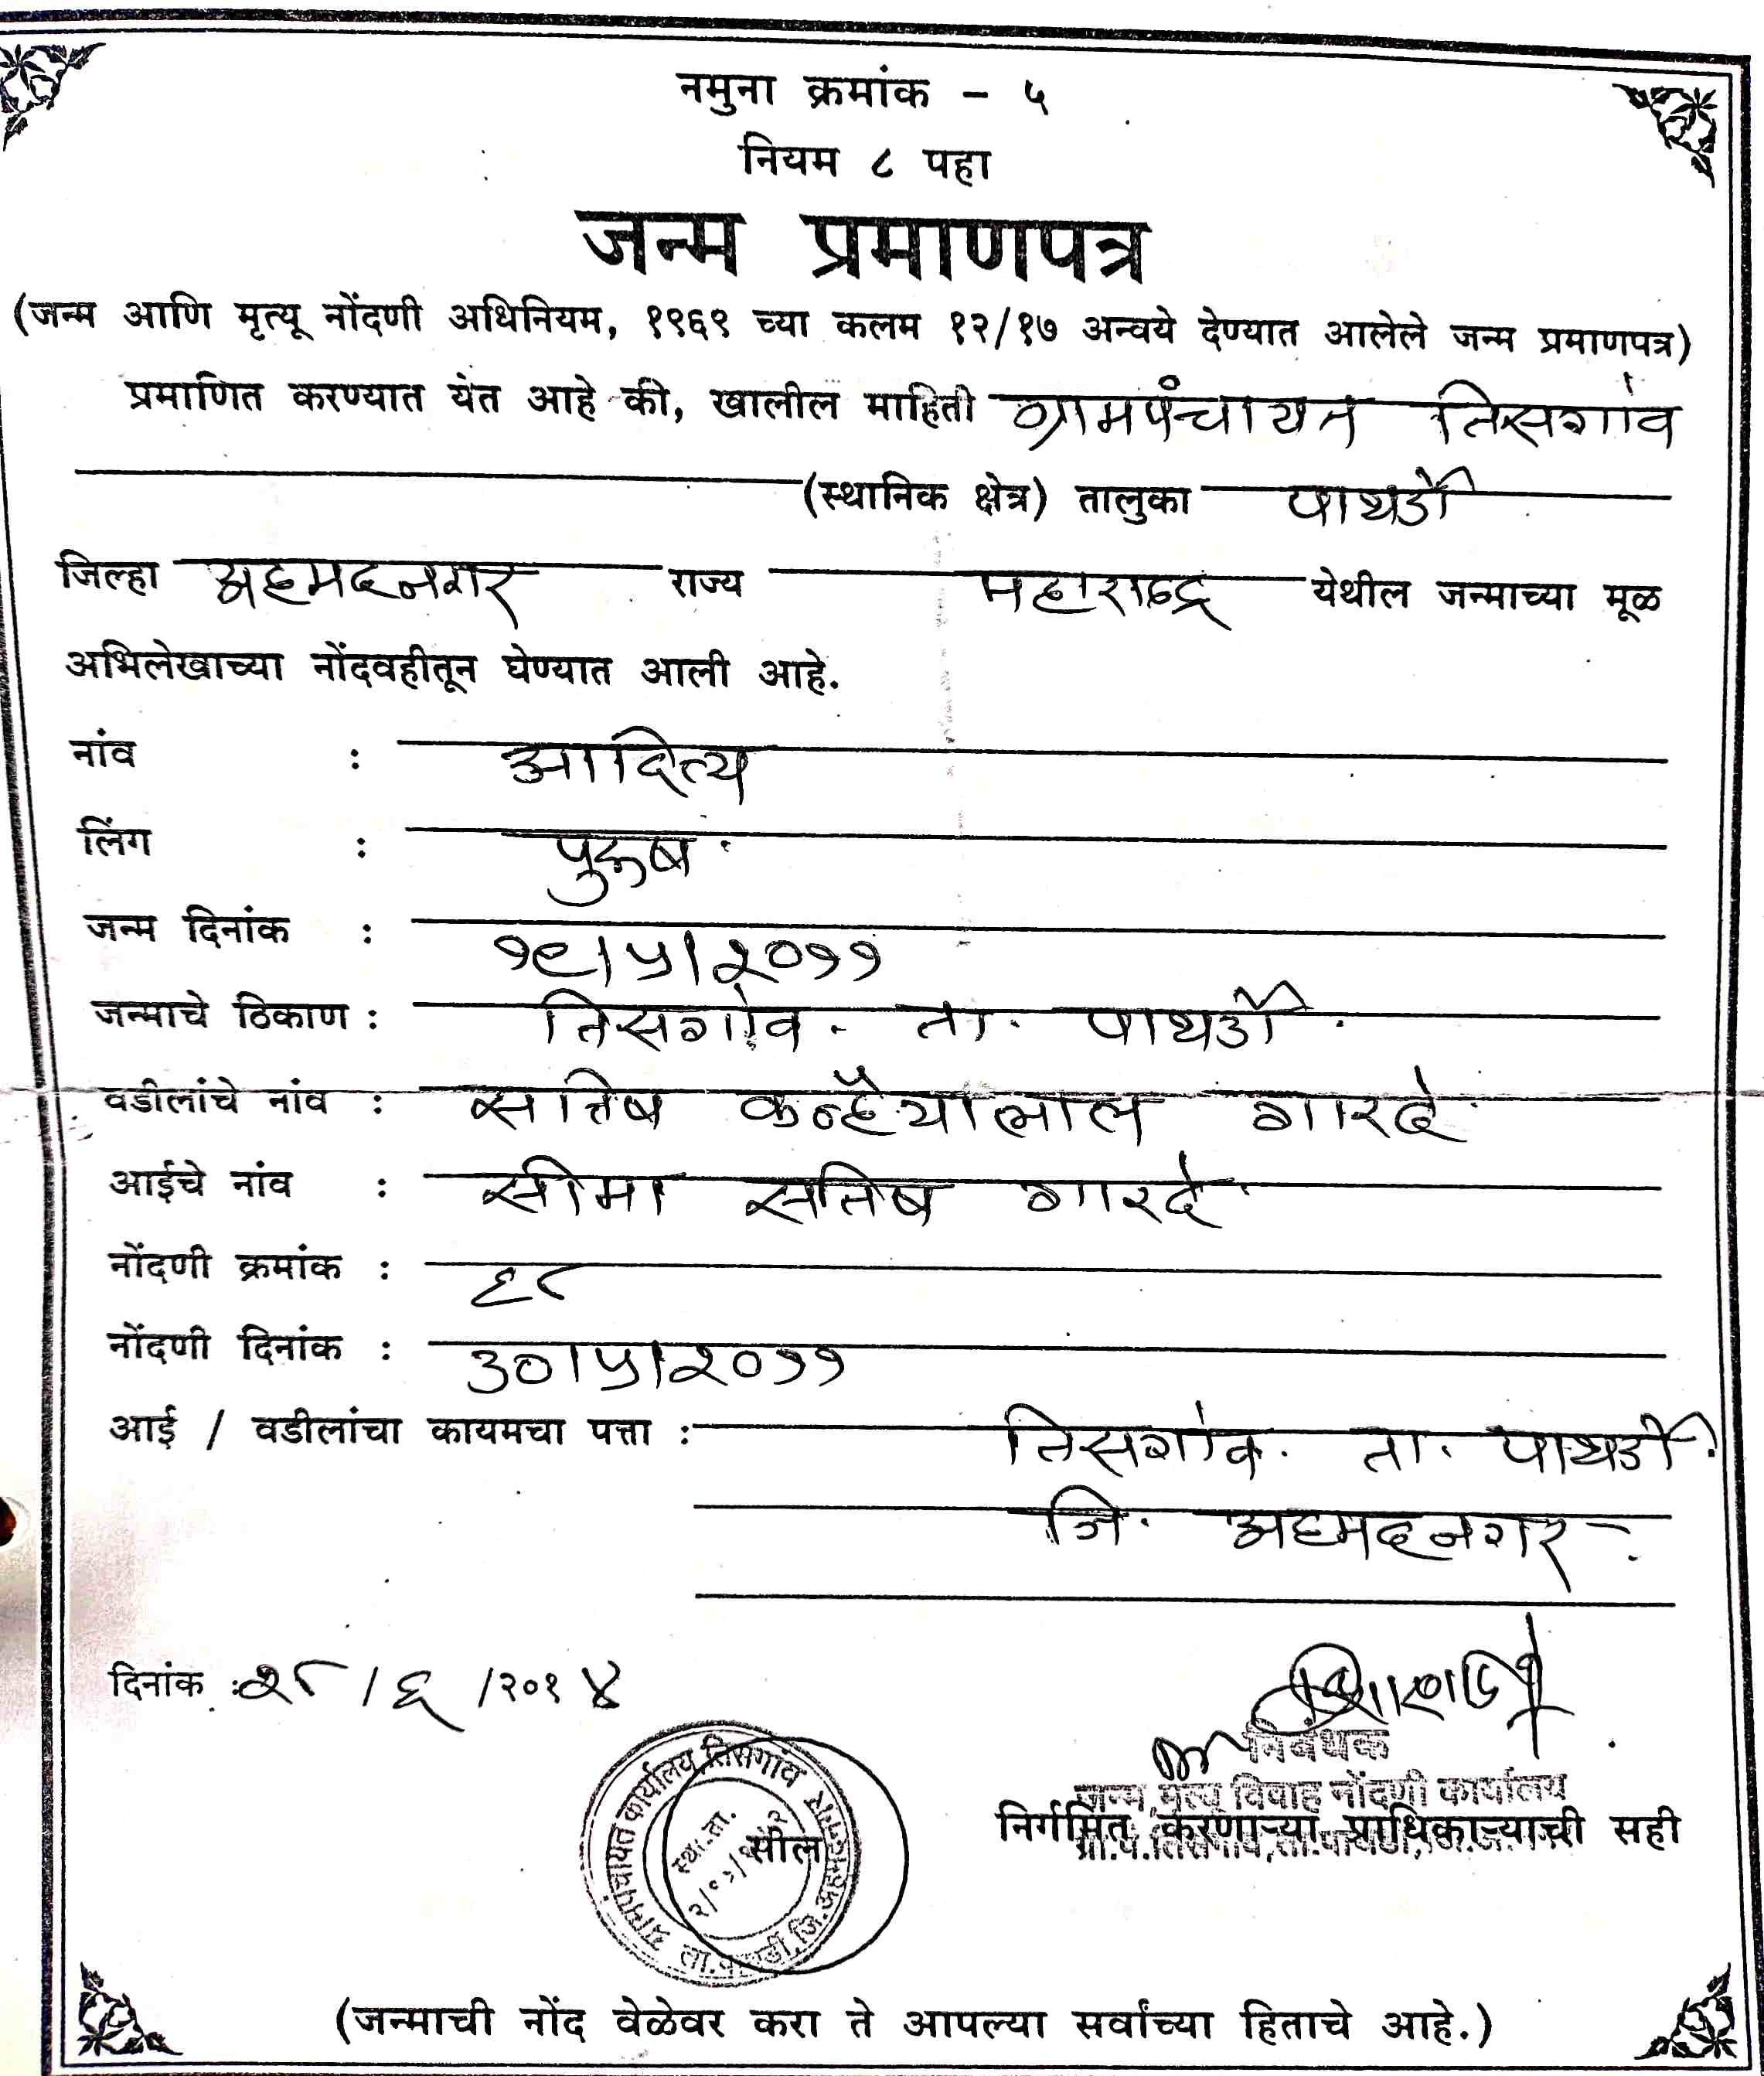 नमुना क्रमांक - ५
नियम ८ पहा
जन्म प्रमाणपत्र
(जन्म आणि मृत्यू नोंदणी अधिनियम, १९६९ च्या कलम १२/१७ अन्वये देण्यात आलेले जन्म प्रमाणपत्र)
प्रमाणित करण्यात येत आहे की, खालील माहिती ग्रामपंचायत तिसगांव
(स्थानिक क्षेत्र) तालुका पाथर्डी
जिल्हा अहमदनगर राज्य महाराष्ट्र येथील जन्माच्या मूळ
अभिलेखाच्या नोंदवहीतून घेण्यात आली आहे.
नांव : आदित्य
लिंग : पुरूष
जन्म दिनांक : १९/५/२०११
जन्माचे ठिकाण : तिसगांव - ता. पाथर्डी.
वडीलांचे नांव : सतिष कन्हैयालाल गारदे
आईचे नांव : सीमा सतिष गारदे
नोंदणी क्रमांक : ६८
नोंदणी दिनांक : ३०/५/२०११
आई / वडीलांचा कायमचा पत्ता : तिसगांव. ता. पाथर्डी.
जि. अहमदनगर
दिनांक : २८/६/२०१४
निबंधक
जन्म मृत्यु विवाह नोंदणी कार्यालय
निर्गमित करणाऱ्या प्राधिकाऱ्याची सही
ग्रा.पं.तिसगांव, ता.पाथर्डी,
ग्रामपंचायत कार्यालय, तिसगांव
ता.पाथर्डी, जि.अहमदनगर
स्था.ता.
सील
(जन्माची नोंद वेळेवर करा ते आपल्या सर्वांच्या हिताचे आहे.)